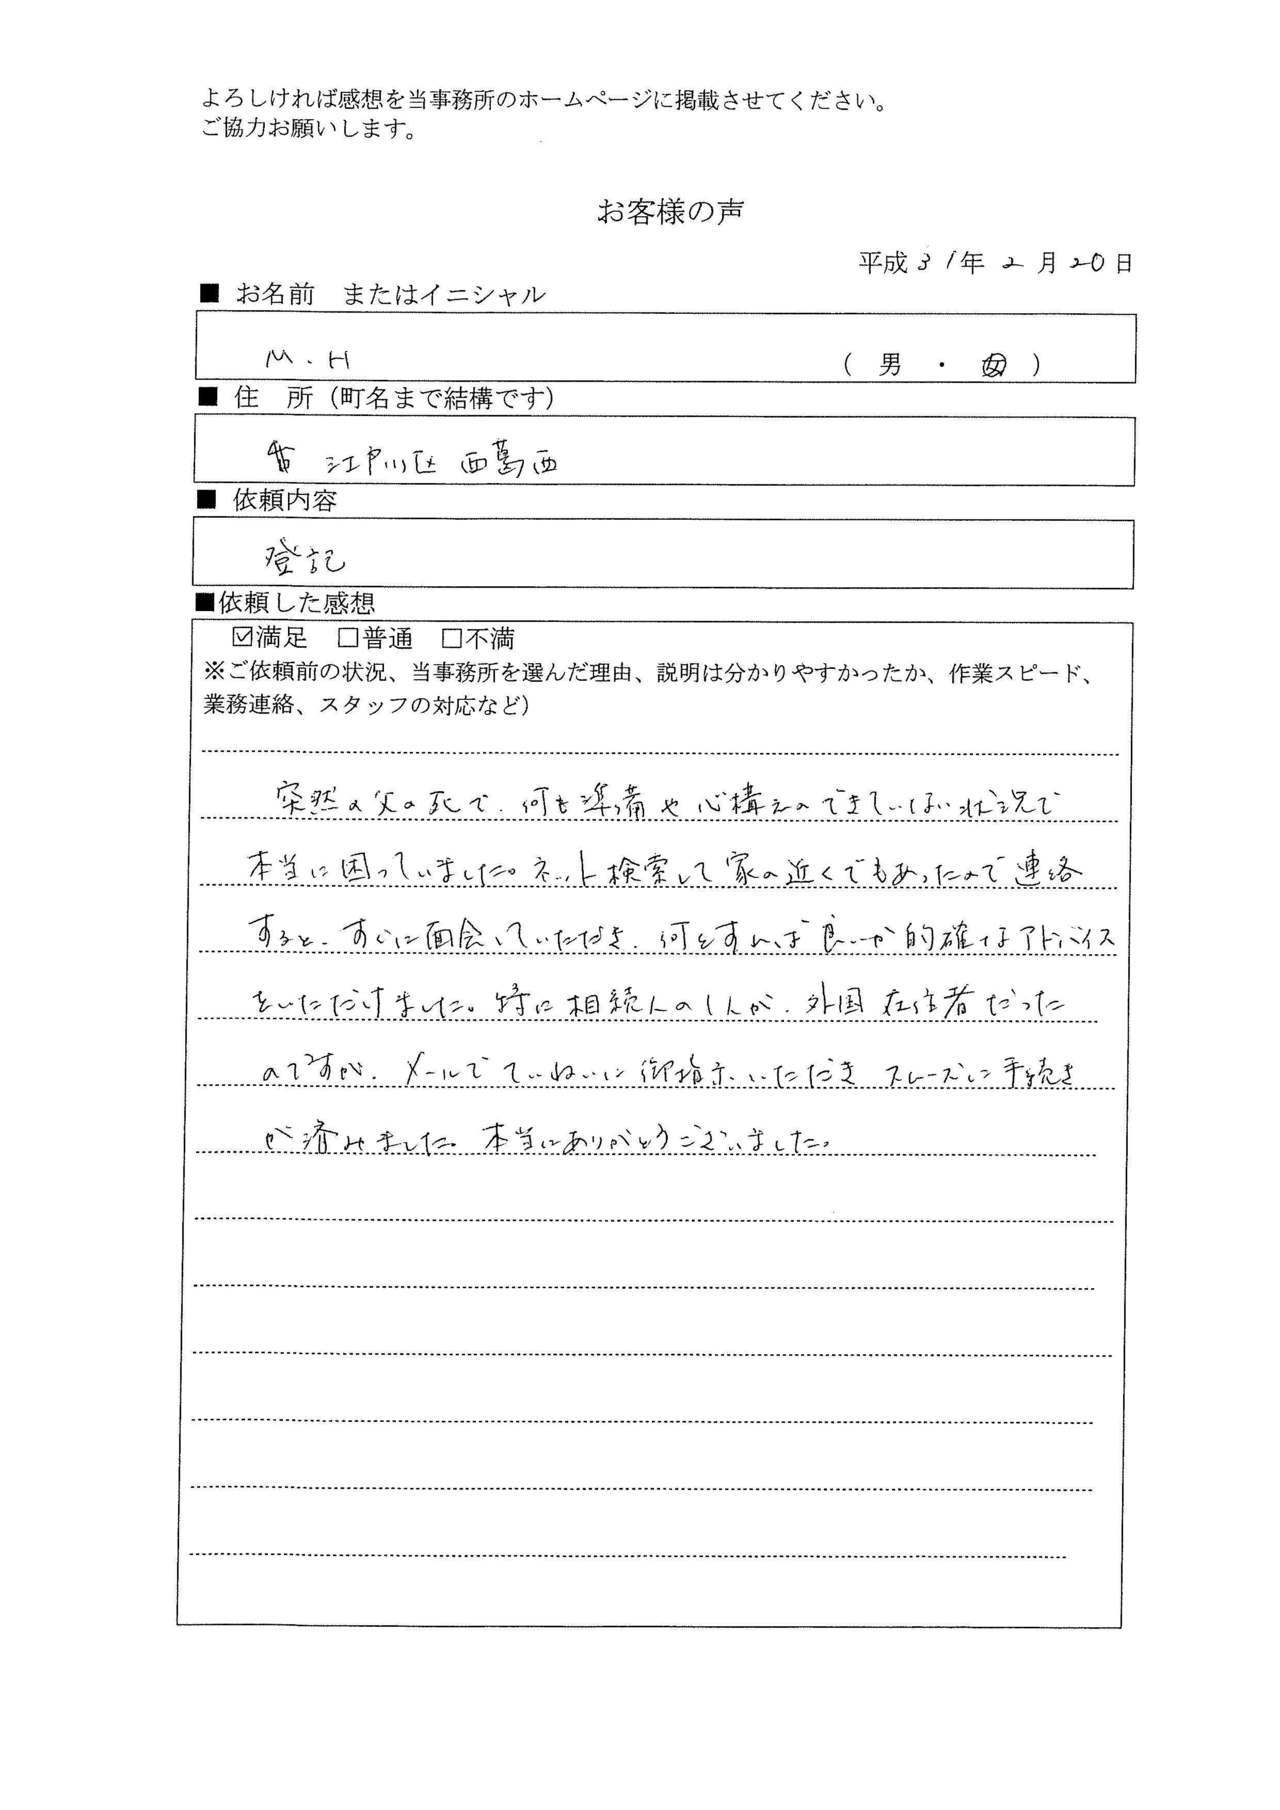 よろしければ感想を当事務所のホームページに掲載させてください。
ご協力お願いします。
お客様の声
平成31年2月20日
■ お名前　またはイニシャル
M.H　（ 男 ・ 女 ）
■ 住　所（町名まで結構です）
江戸川区 西葛西
■ 依頼内容
登記
■依頼した感想
☑満足　□普通　□不満
※ご依頼前の状況、当事務所を選んだ理由、説明は分かりやすかったか、作業スピード、
業務連絡、スタッフの対応など）
突然の父の死で、何も準備や心構えのできていない状況で
本当に困っていました。ネット検索して家の近くでもあったので連絡
すると、すぐに面会していただき、何をすれば良いか的確なアドバイス
をいただけました。特に相続人の1人が、外国在住者だった
のですが、メールでていねいに御指示いただき スムーズに手続き
が済みました。本当にありがとうございました。